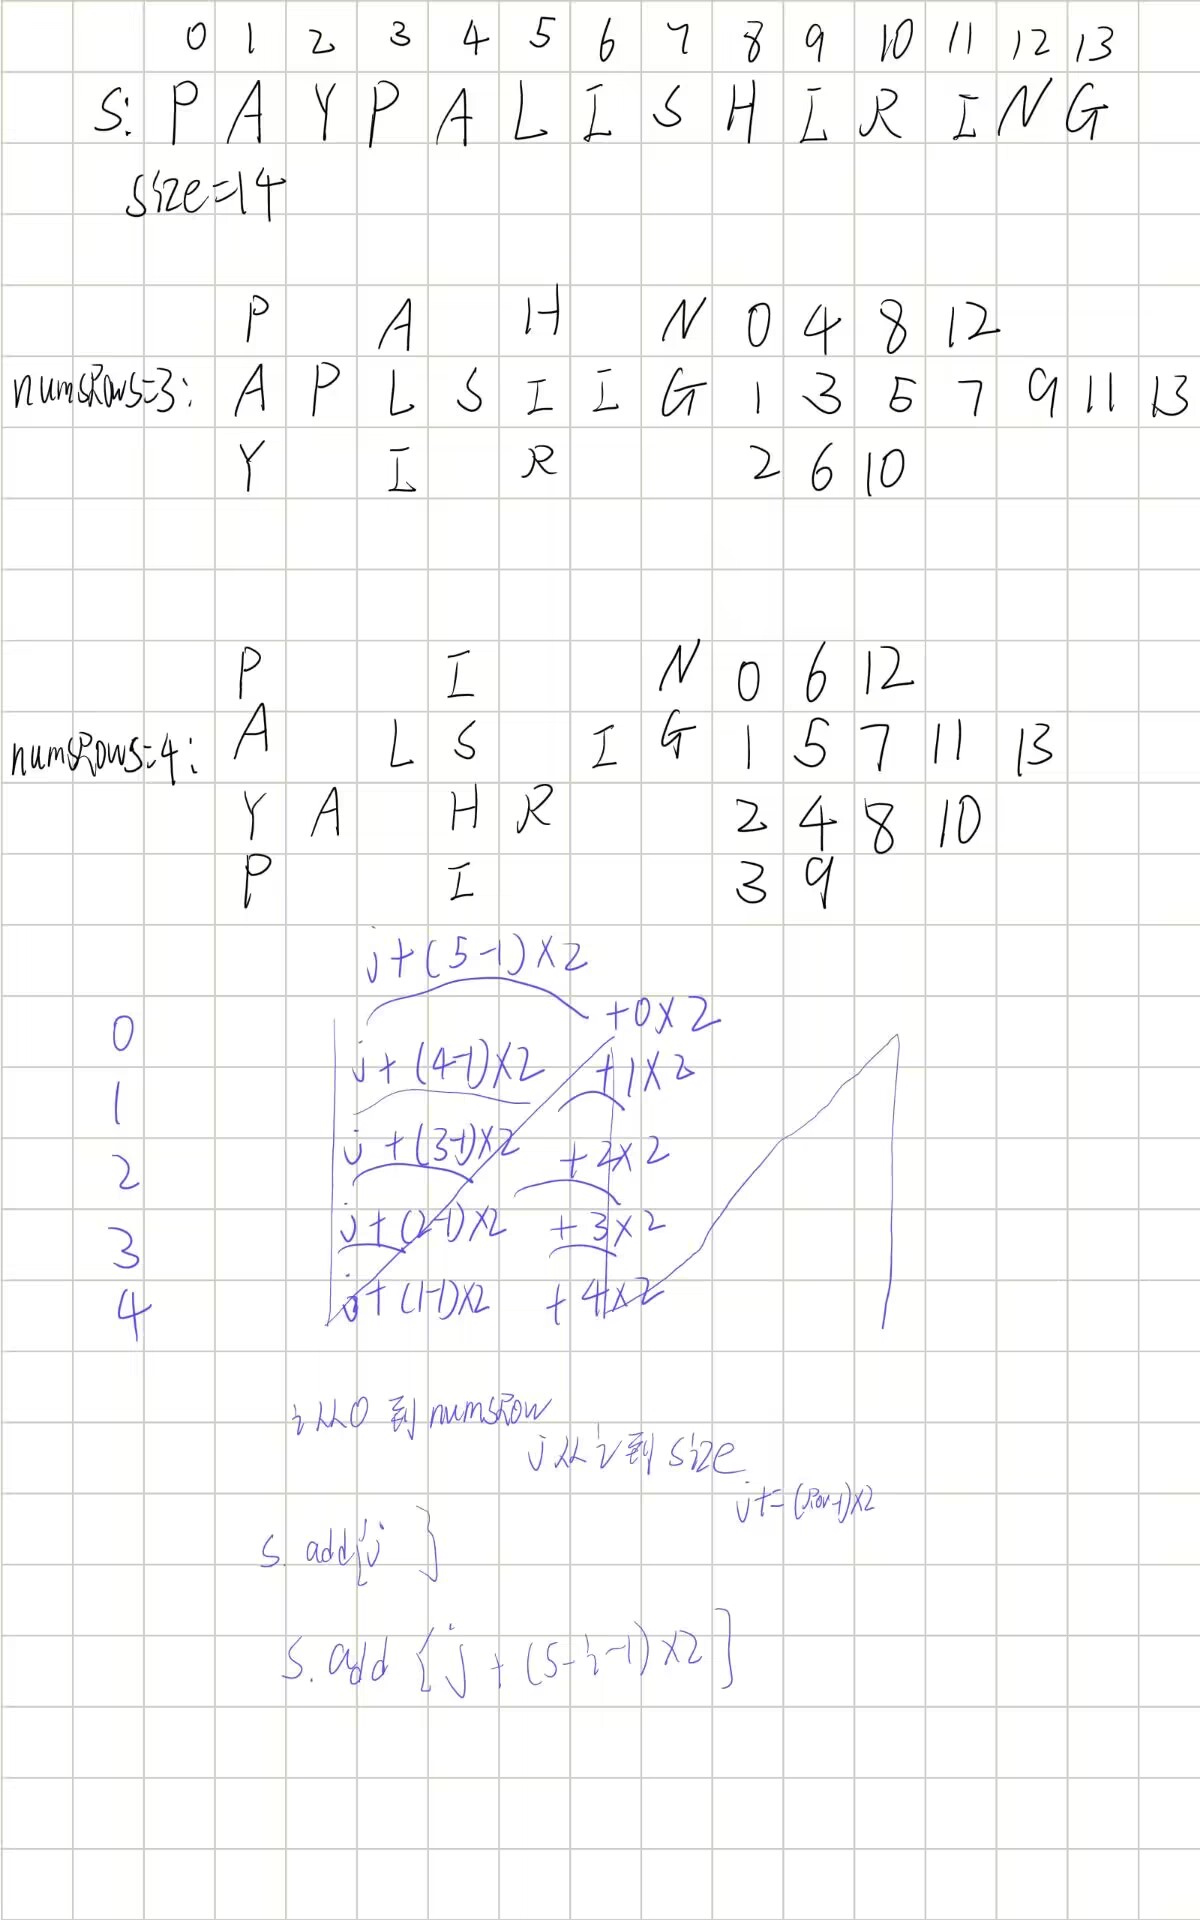 0 1 2 3 4 5 6 7 8 9 10 11 12 13
S: P A Y P A L I S H I R I N G
size=14
P A H N 0 4 8 12
numsRows=3: A P L S I I G 1 3 5 7 9 11 13
Y I R 2 6 10
P I N 0 6 12
numsRows=4: A L S I G 1 5 7 11 13
Y A H R 2 4 8 10
P I 3 9
j+(5-1)×2
0 +0×2
1 j+(4-1)×2 +1×2
2 j+(3-1)×2 +2×2
3 j+(2-1)×2 +3×2
4 j+(1-1)×2 +4×2
i从0到numsRow
j从i到size
j+=(Row-1)×2
s.add{j }
s.add{j+(5-i-1)×2}